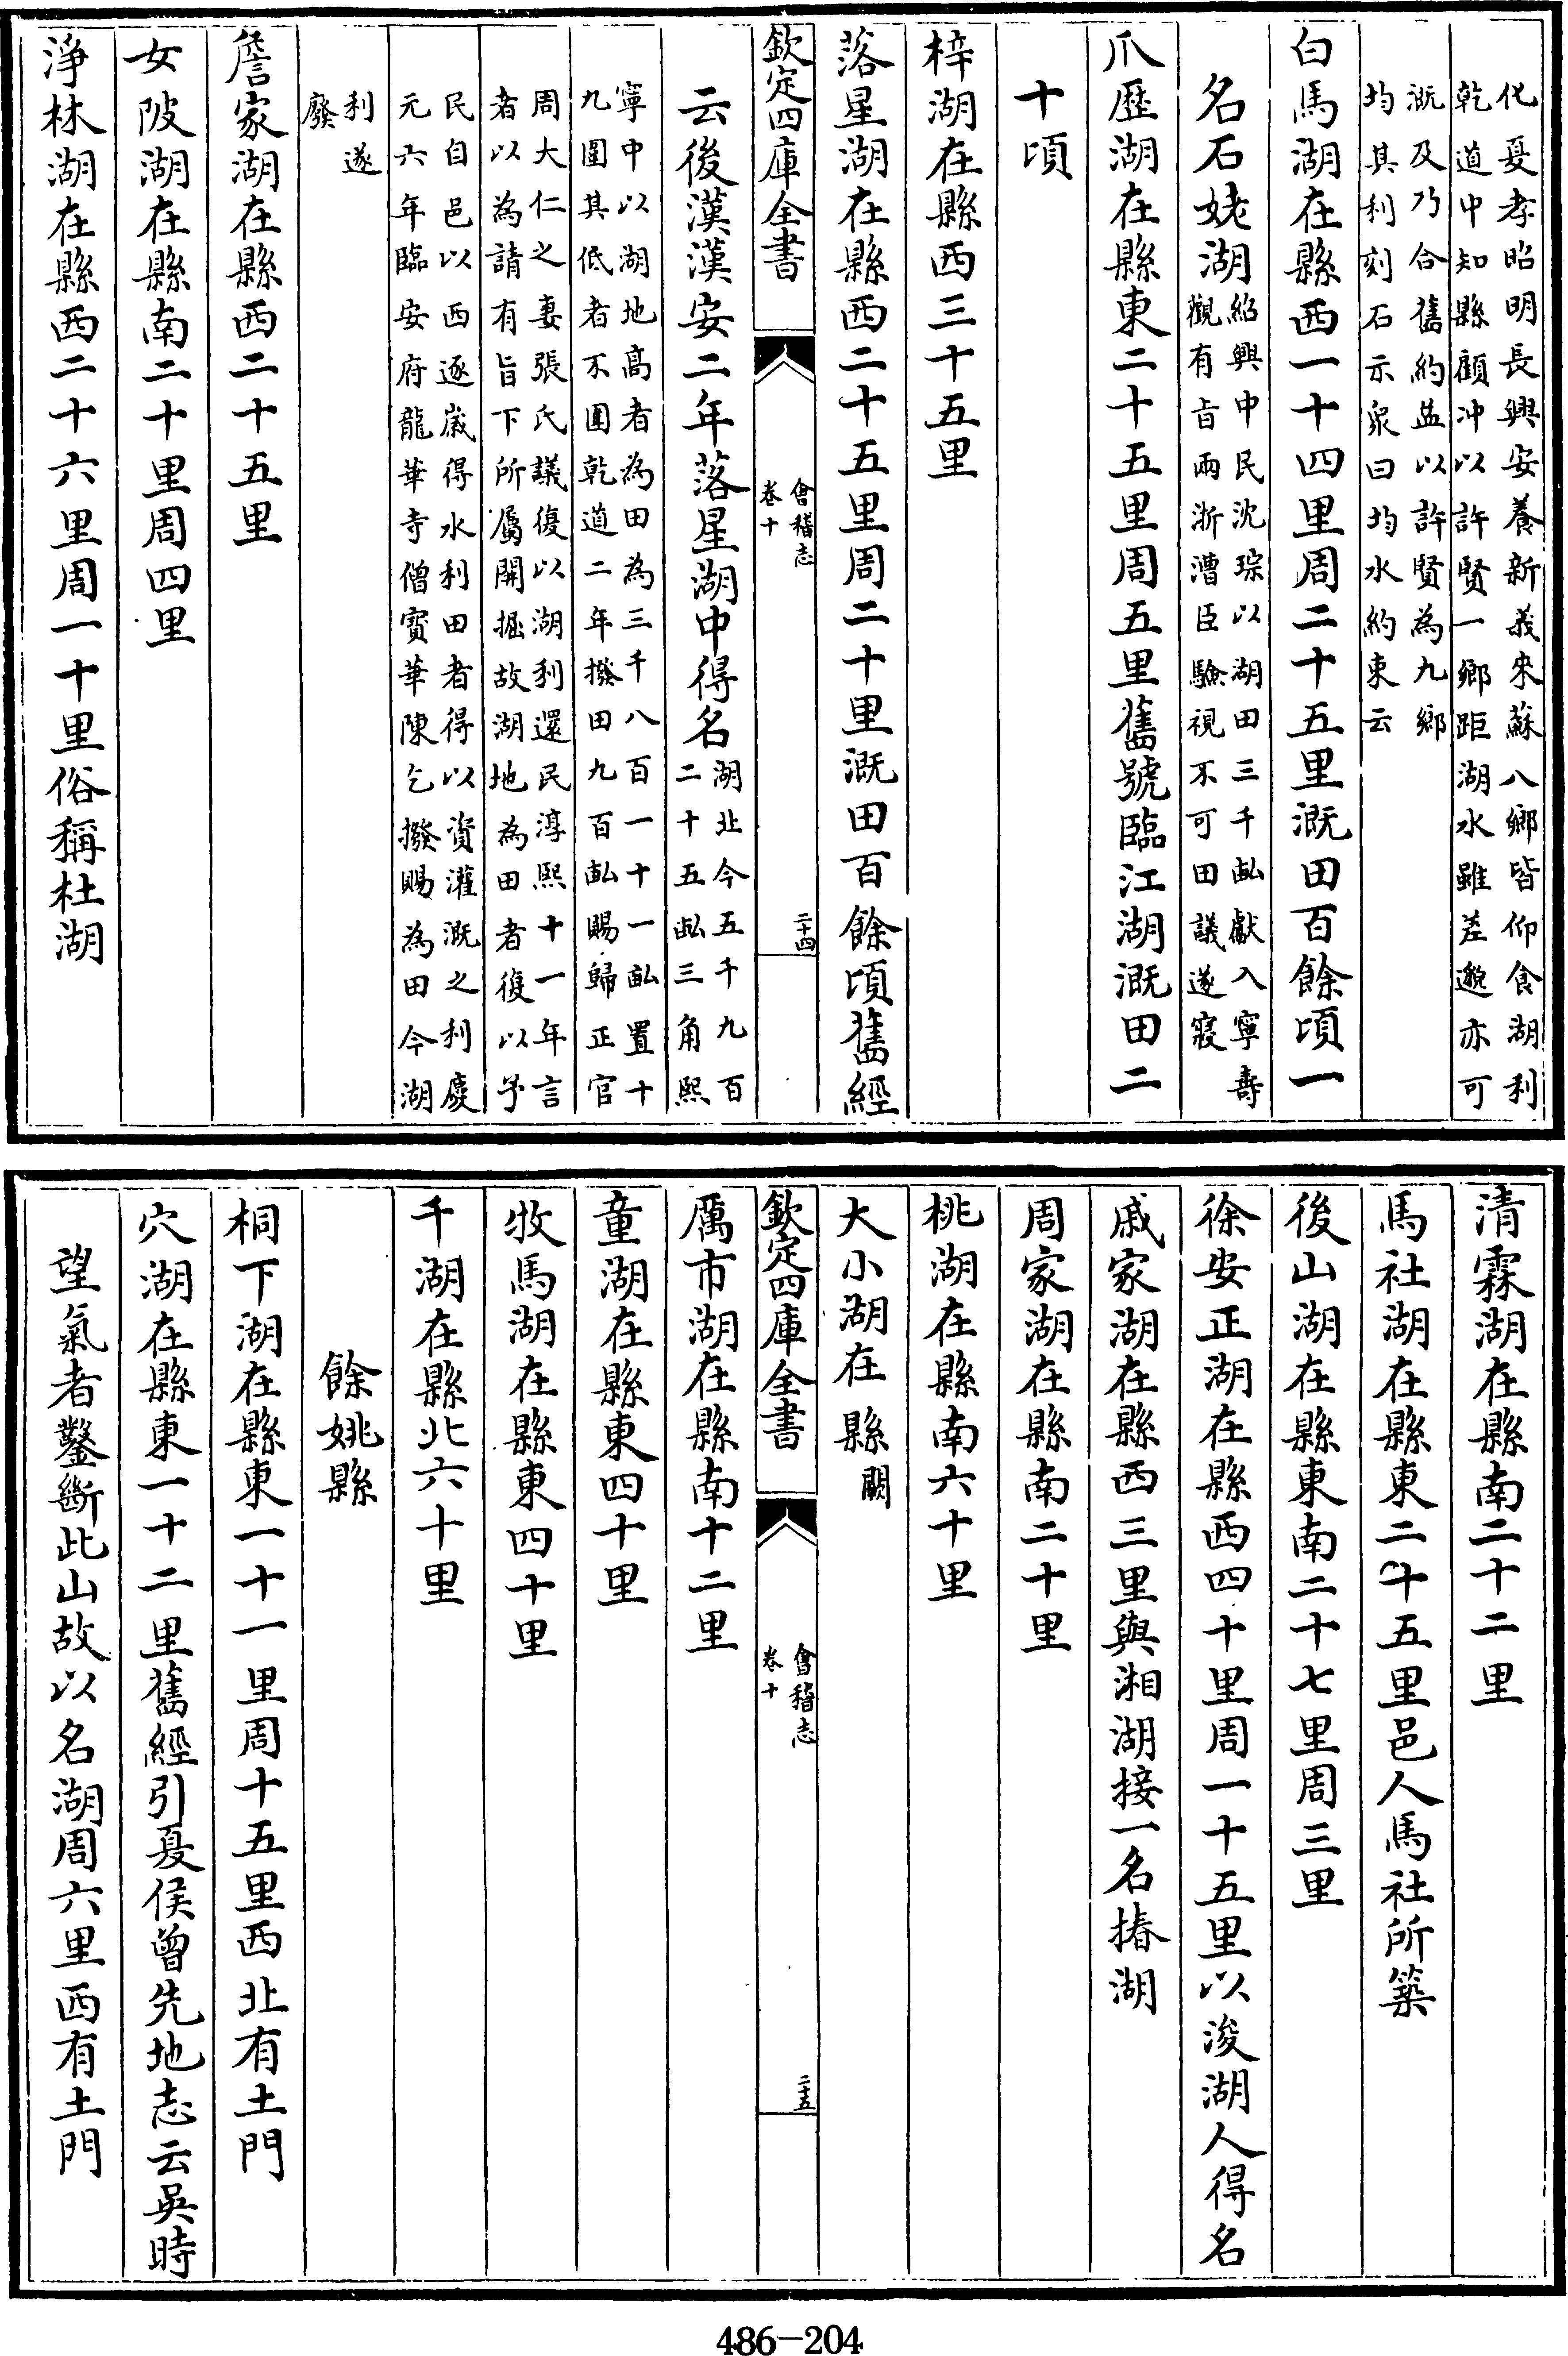 化夏孝昭明長興安養新義來蘇八鄉皆仰食湖利
乾道中知縣顧冲以許賢一鄉距湖水雖差邈亦可
溉及乃合舊約益以許賢為九鄉
均其利刻石示衆曰均水約束云
白馬湖在縣西一十四里周二十五里溉田百餘頃一
名石姥湖紹興中民沈琮以湖田三千畝獻入寧壽
觀有旨兩浙漕臣驗視不可田議遂寢
爪歷湖在縣東二十五里周五里舊號臨江湖溉田二
十頃
梓湖在縣西三十五里
落星湖在縣西二十五里周二十里溉田百餘頃舊經
欽定四庫全書
會稽志
卷十
二十四
云後漢漢安二年落星湖中得名湖北今五千九百
二十五畝三角熙
寧中以湖地高者為田為三千八百一十一畝置十
九圍其低者不圍乾道二年撥田九百畝賜歸正官
周大仁之妻張氏議復以湖利還民淳熙十一年言
者以為請有旨下所屬開掘故湖地為田者復以予
民自邑以西逐歲得水利田者得以資灌溉之利慶
元六年臨安府龍華寺僧寳華陳乞撥賜為田今湖
利遂
廢
詹家湖在縣西二十五里
女陂湖在縣南二十里周四里
淨林湖在縣西二十六里周一十里俗稱杜湖
清霖湖在縣南二十二里
馬社湖在縣東二十五里邑人馬社所築
後山湖在縣東南二十七里周三里
徐安正湖在縣西四十里周一十五里以浚湖人得名
戚家湖在縣西三里與湘湖接一名摏湖
周家湖在縣南二十里
桃湖在縣南六十里
大小湖在縣闕
欽定四庫全書
會稽志
卷十
二十五
厲市湖在縣南十二里
童湖在縣東四十里
牧馬湖在縣東四十里
千湖在縣北六十里
餘姚縣
桐下湖在縣東一十一里周十五里西北有土門
穴湖在縣東一十二里舊經引夏侯曾先地志云吳時
望氣者鑿斷此山故以名湖周六里西有土門
486-204